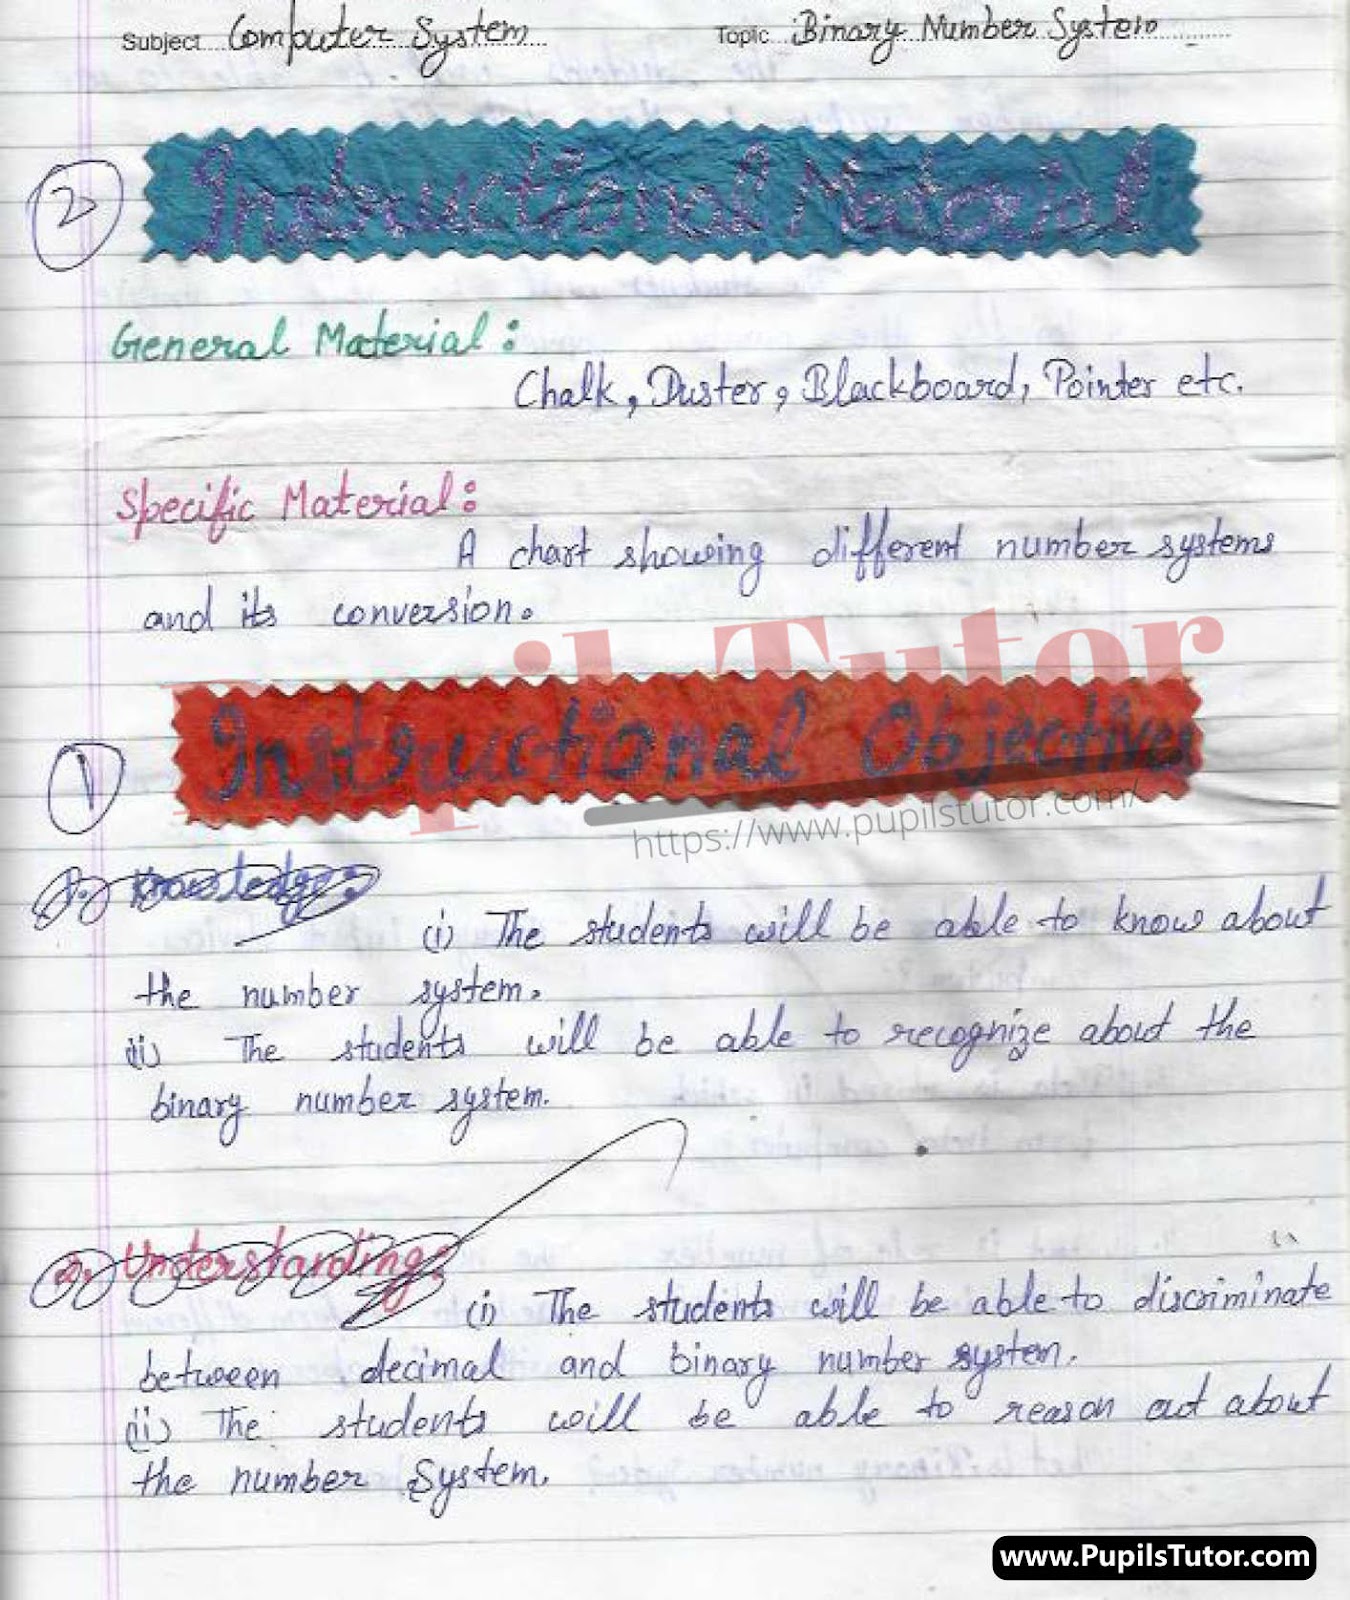 Subject Computer System Topic Binary Number System
2
Instructional Material
General Material :
Chalk, Duster, Blackboard, Pointer etc.
Specific Material :
A chart showing different number systems
and its conversion.
Pupil Tutor
1
Instructional Objectives
https://www.pupilstutor.com/
1. Knowledge :
(i) The students will be able to know about
the number system.
(ii) The students will be able to recognize about the
binary number system.
2. Understanding :
(i) The students will be able to discriminate
between decimal and binary number system.
(ii) The students will be able to reason out about
the number System.
www.PupilsTutor.com